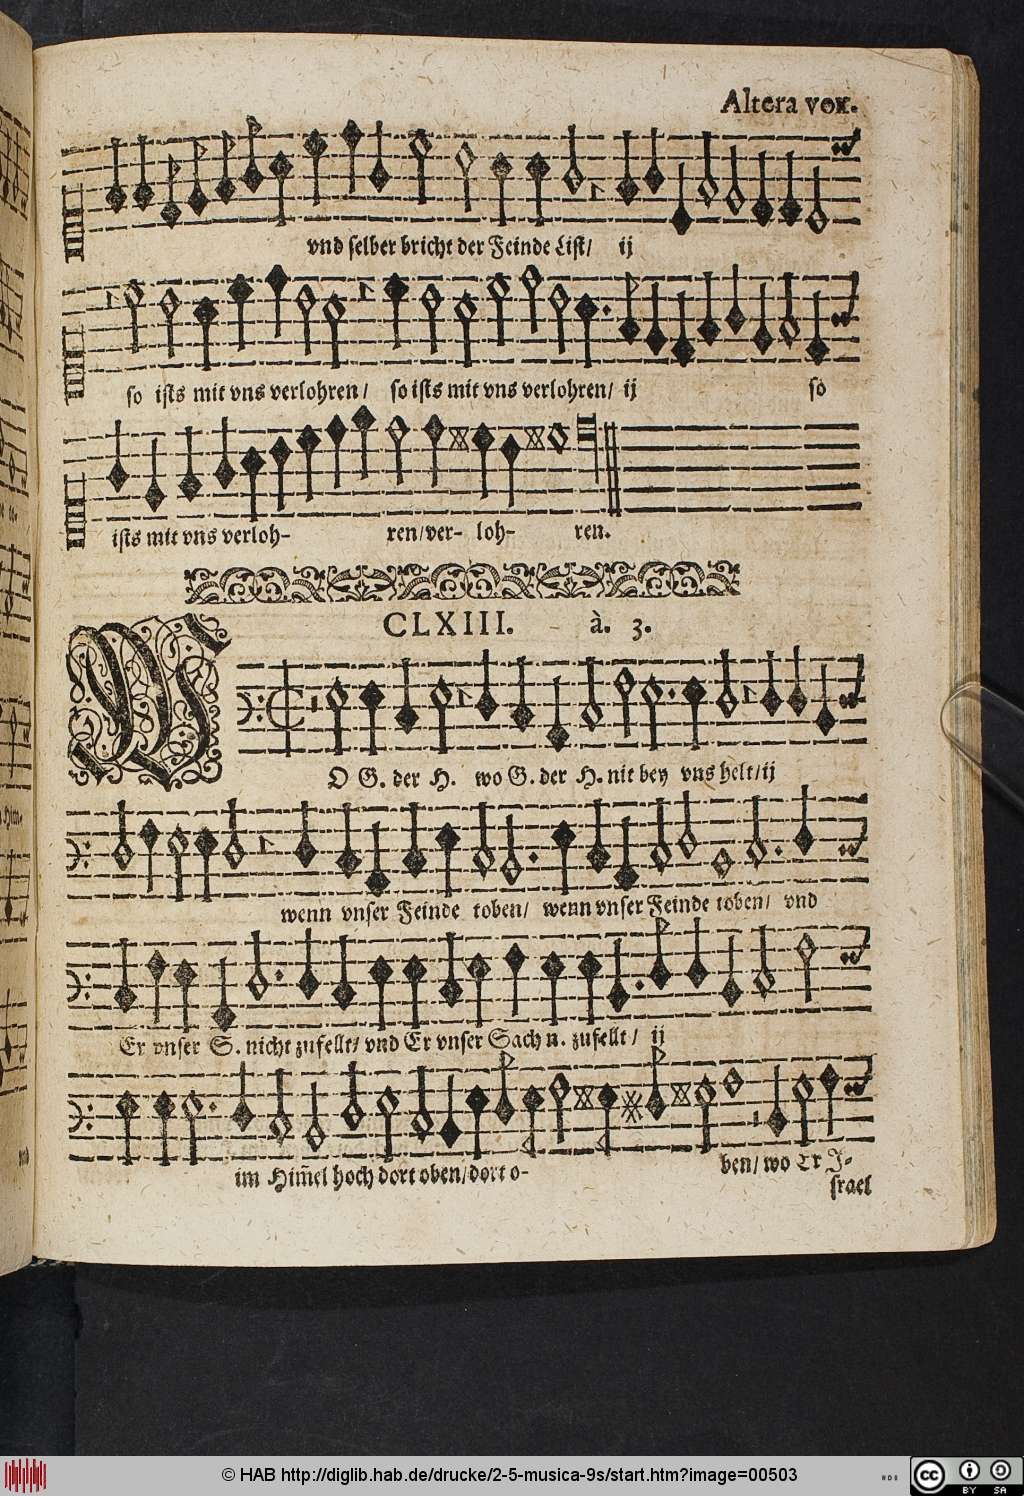 Altera vox.
vnd selber bricht der Feinde List/ ij
so ists mit vns verlohren/ so ists mit vns verlohren/ ij so
ists mit vns verloh- ren/ver- loh- ren.
CLXIII. à. 3.
WO G. der H. wo G. der H. nit bey vns helt/ij
wenn vnser Feinde toben/ wenn vnser Feinde toben/ vnd
Er vnser S. nicht zufellt/ vnd Er vnser Sach n. zufellt/ ij
im Him̃el hoch dort oben/dort o- ben/ wo Er J-
srael
© HAB http://diglib.hab.de/drucke/2-5-musica-9s/start.htm?image=00503
cc BY SA